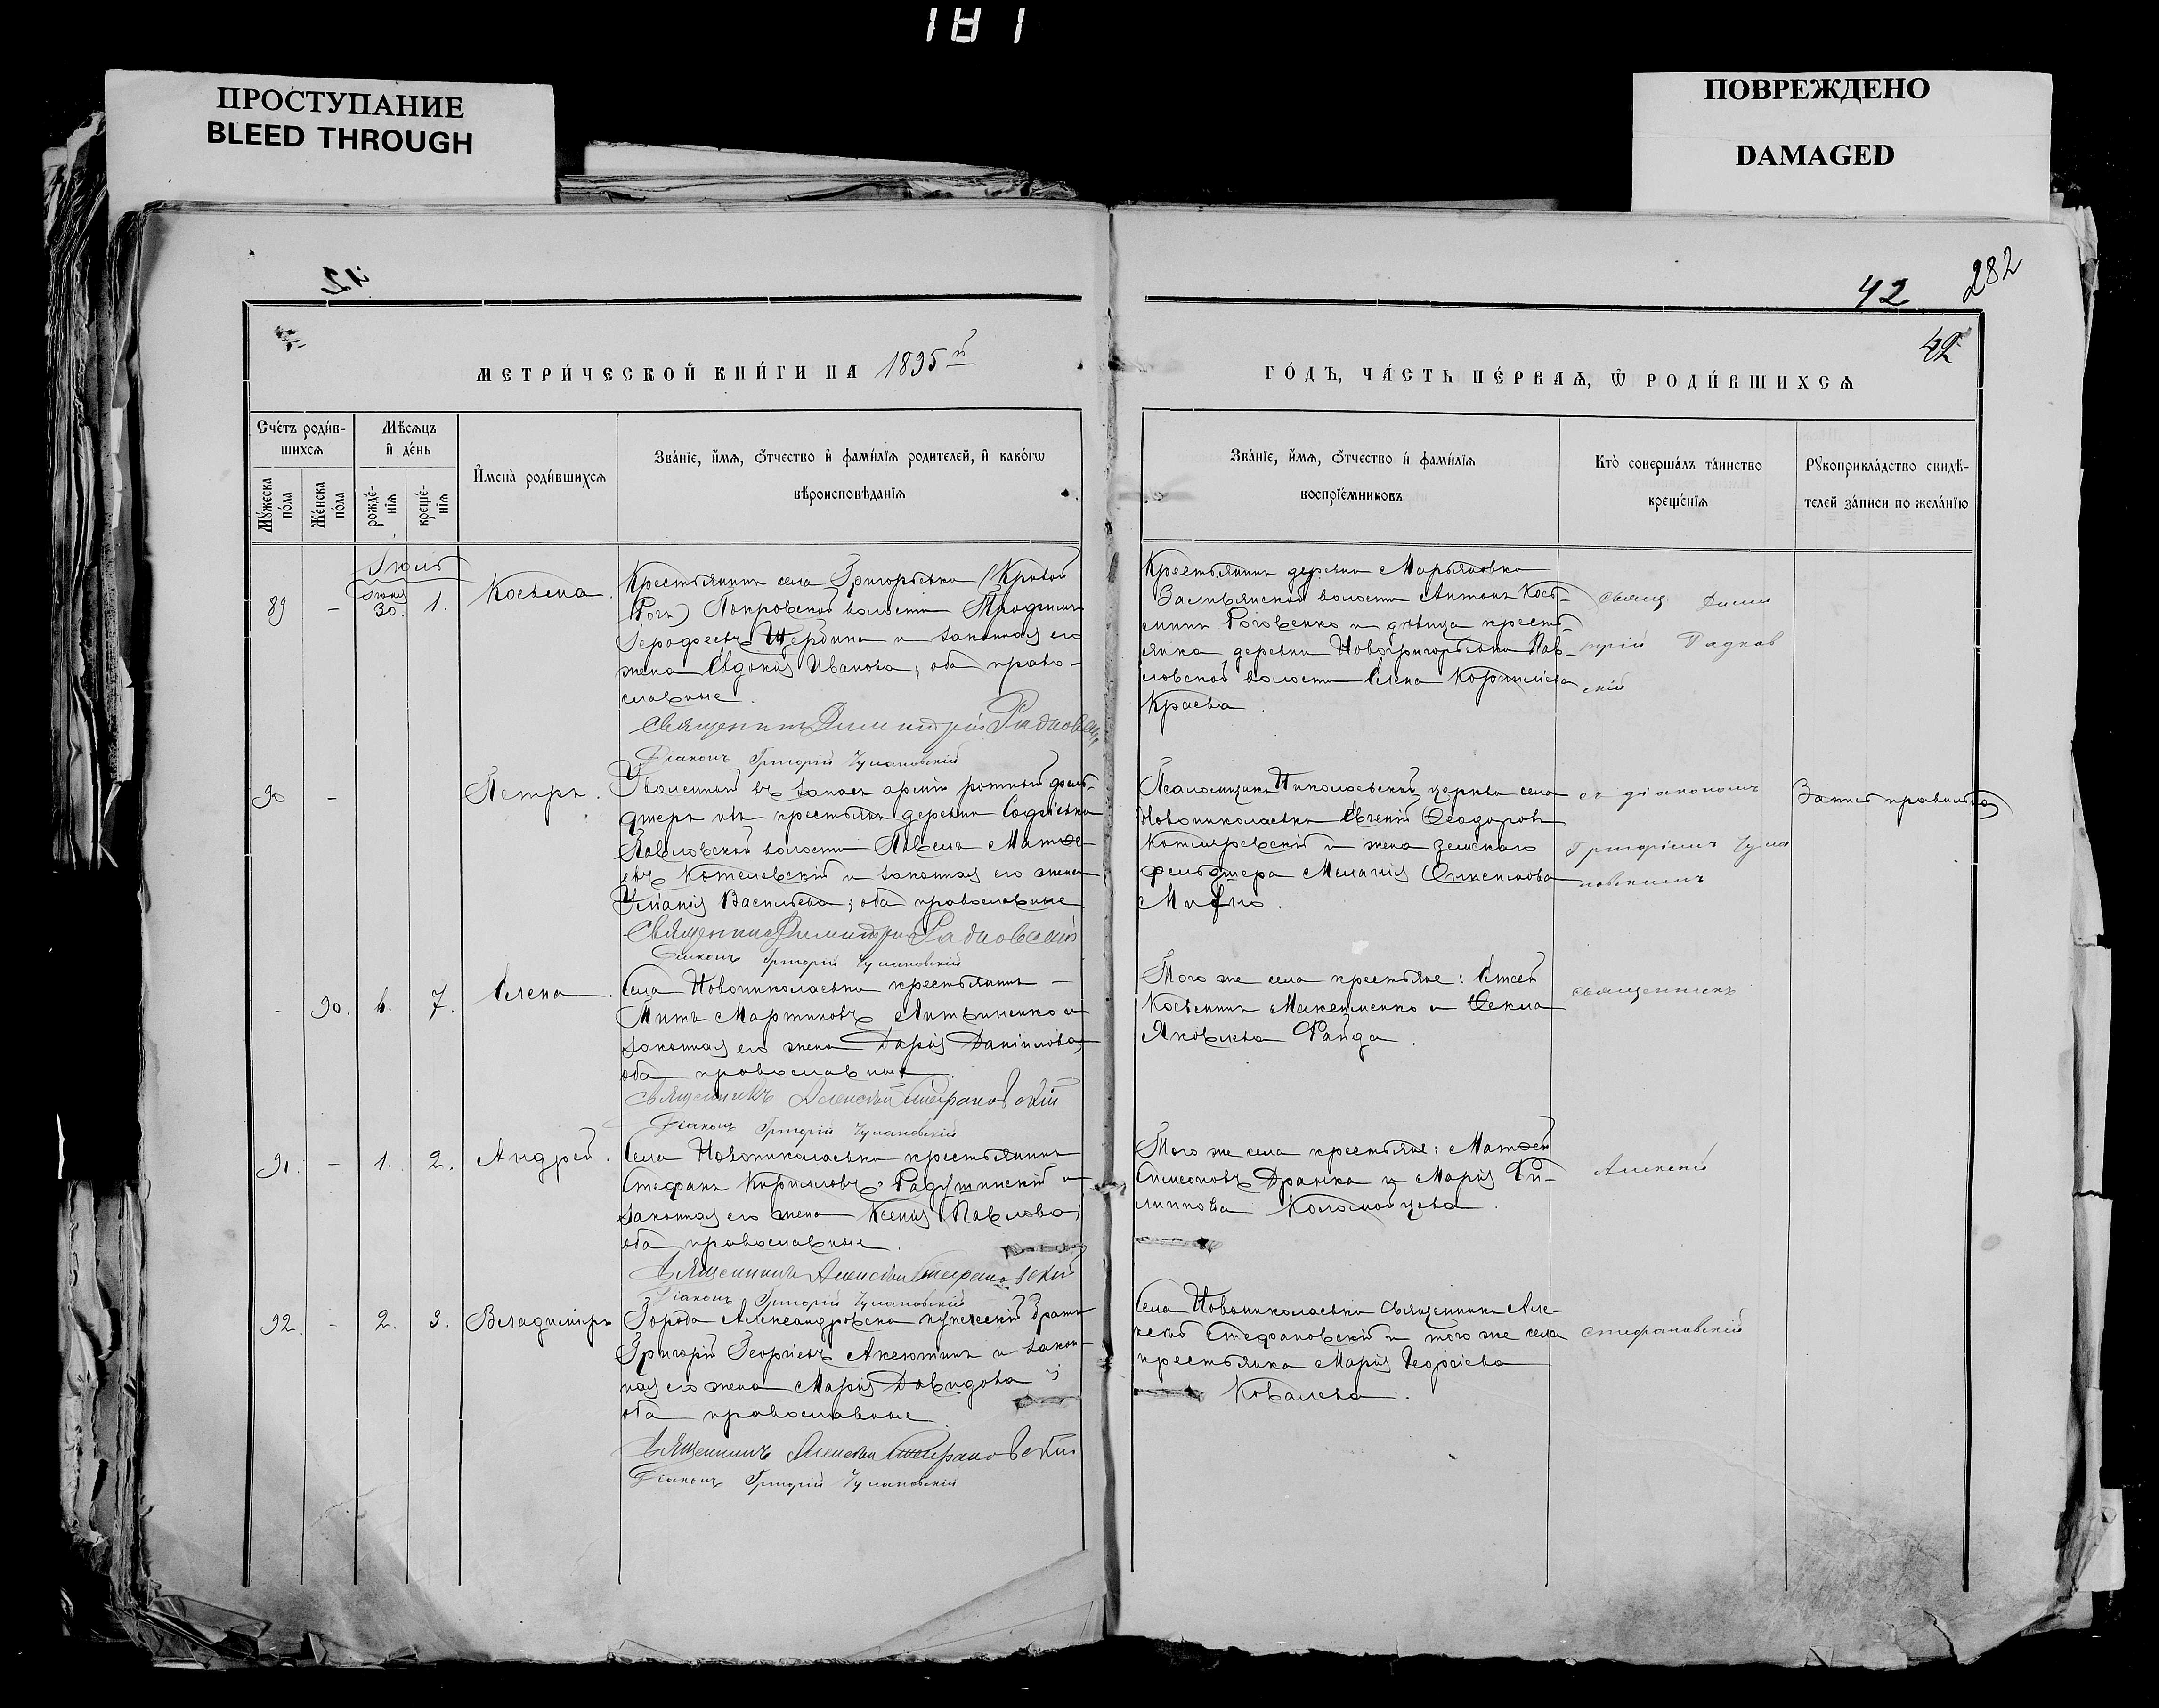 181
ПРОСТУПАНИЕ
BLEED THROUGH
ПОВРЕЖДЕНО
DAMAGED
42
282
42
МЕТРИ́ЧЕСКОЙ КНИ́ГИ НА 1895й
ГО́ДЪ, ЧА́СТЬ ПЕ́РВАѦ, Ѡ РОДИ́ВШИХСѦ
Сче́тъ роди́в-
шихсѧ
Мѣ́сѧцъ
и҆ де́нь
Мꙋ́жеска по́ла
Же́нска по́ла
рожде́-
нїѧ
креще́-
нїѧ
И҆мена̀ роди́вшихсѧ
Зва́нїе, и҆́мѧ, ѻ҆́тчество и҆ фами́лїѧ роди́телей, и҆ како́гѡ
вѣроисповѣ́данїѧ
Зва́нїе, и҆́мѧ, ѻ҆́тчество и҆ фами́лїѧ
воспрїе́мниковъ
Кто̀ соверша́лъ та́инство
креще́нїѧ
Рꙋкоприкла́дство свидѣ́-
телей за́писи по жела́нїю
Іюль
89 - Іюня 30. 1. Косьма.
Крестьянинъ села Григорьевки (Кривой
Рогъ) Покровской волости Трофимъ
Іерофеевъ Щербина и законная его
жена Евдокія Иванова; оба право-
славные.
Священникъ Димитрій Радковскій
Діаконъ Григорій Чумановскій
Крестьянинъ деревни Марьяновки
Заливянской волости Антонъ Кось-
минъ Роговенко и дѣвица кресть-
янка деревни Новогригорьевки Пав-
ловской волости Елена Корнилієва
Краева.
Священ. Дими
трій Радков
скій
90 - Петръ.
Уволенный въ запасъ арміи ротный фель-
дшеръ изъ крестьянъ деревни Софіевки
Павловской волости Павелъ Матѳе-
евъ Котелевскій и законная его жена
Уліанія Васильева; оба православные
Священникъ Димитрій Радковскій
Діаконъ Григорій Чумановскій
Псаломщикъ Николаевской церкви села
Новониколаевки Евгеній Ѳеодоровъ
Котляревскій и жена земскаго
фельдшера Меланія
съ діакономъ
Григоріемъ Чума
новскимъ
Запись правильна
- 90. 6. 7. Елена.
Села Новониколаевки крестьянинъ
Титъ Мартиновъ Литвиненко и
законная его жена Дарія Даніилова;
оба православные.
Священникъ Алексѣй Стефановскій
Діаконъ Григорій Чумановскій
Того же села крестьяне: Евсей
Косьминъ Максименко и Ѳекла
Яковлева Файда.
священникъ
91. - 1. 2. Андрей.
Села Новониколаевки крестьянинъ
Стефанъ Кирилловъ Радушинскій и
законная его жена Ксенія Павлова;
оба православные.
Священникъ Алексѣй Стефановскій
Діаконъ Григорій Чумановскій
Того же села крестьяне: Матѳей
Симеоновъ Дранка и Марія Фи-
липпова Коломойцева.
Алексѣй
92. - 2. 3. Владиміръ
Города Александровска купеческій братъ
Григорій Георгіевъ Аксютинъ и закон-
ная его жена Марія Давидова;
оба православные
Священникъ Алексѣй Стефановскій
Діаконъ Григорій Чумановскій
Села Новониколаевки священникъ Але-
ксѣй Стефановскій и того же села
крестьянка Марія Георгіева
Ковалева.
Стефановскій